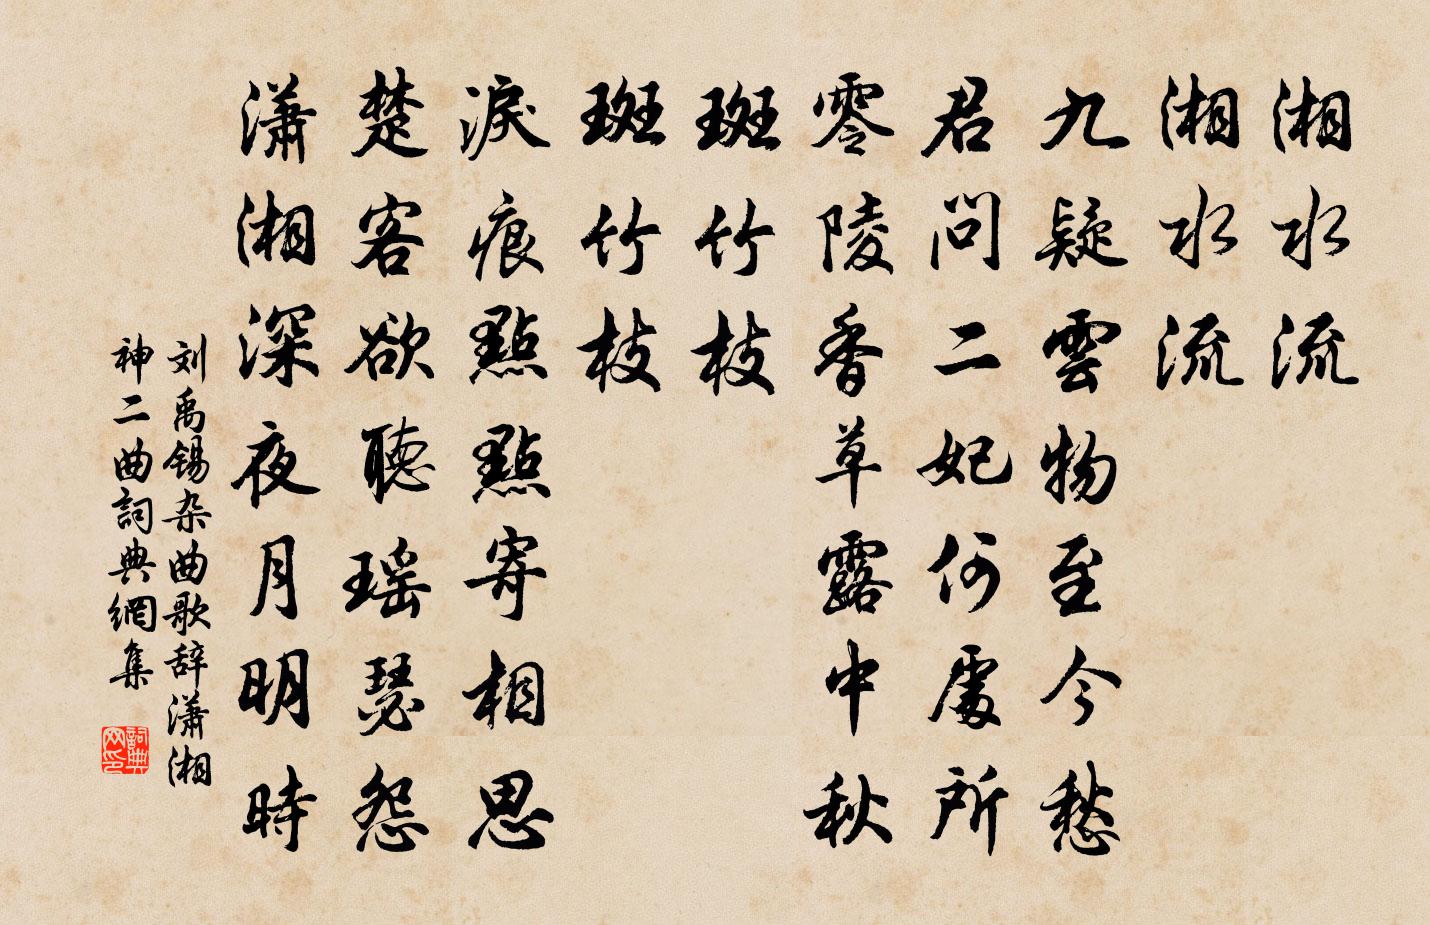 湘水流
湘水流
九疑雲物至今愁
君問二妃何處所
零陵香草露中秋
斑竹枝
斑竹枝
淚痕點點寄相思
楚客欲聽瑶瑟怨
瀟湘深夜月明時
刘禹锡杂曲歌辞瀟湘
神二曲詞典網集
詞典
网印